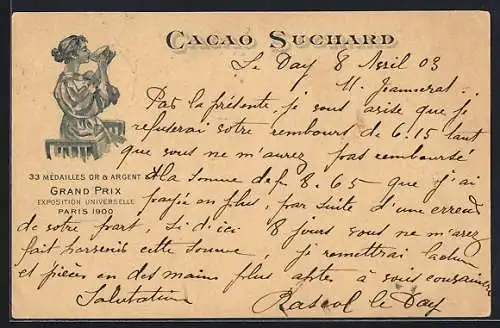 CACAO SUCHARD
Le Day 8 Avril 03
M. Jeanneret
Par la présente, je vous avise que je
refuserai votre rembours de 6.15 tant
que vous ne m'aurez pas remboursé
33 MÉDAILLES OR & ARGENT
la somme de f 8.65 que j'ai
GRAND PRIX
EXPOSITION UNIVERSELLE
PARIS 1900
payée en plus, par suite d'une erreur
de votre part, si d'ici 8 jours vous ne m'avez
fait parvenir cette somme, je remettrai
et pièces en des mains plus aptes à vous
Salutation
le Day